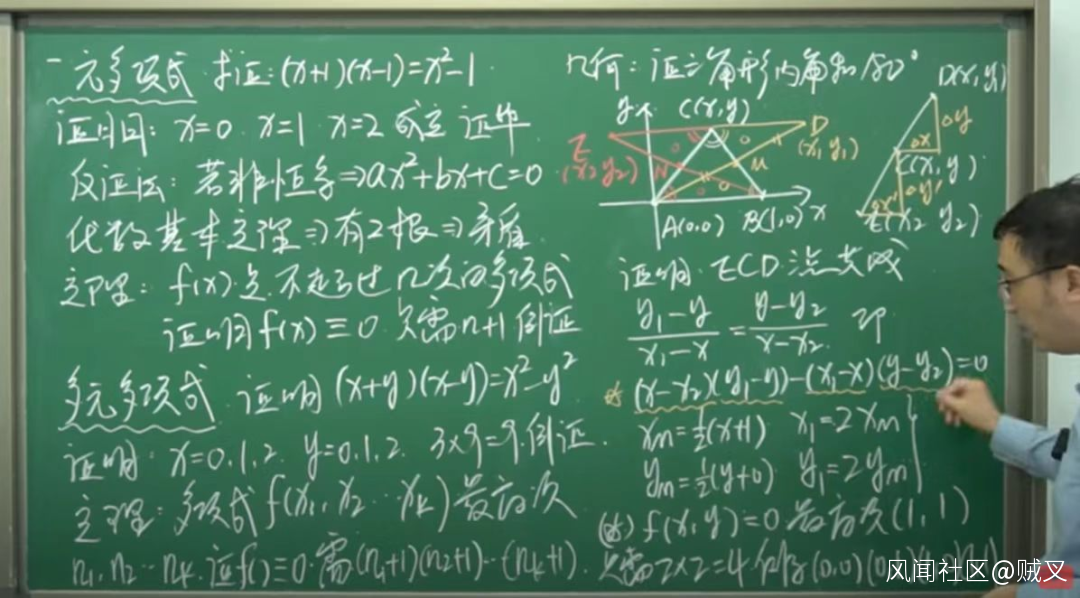 一元多项式 求证:(x+1)(x-1)=x²-1
证明: x=0 x=1 x=2 成立 证毕
反证法: 若非恒等⇒ax²+bx+c=0
代数基本定理⇒有2根⇒矛盾.
定理: f(x)是不超过n次的多项式
证明f(x)≡0 只需n+1例证
多元多项式 证明(x+y)(x-y)=x²-y²
证明: x=0,1,2. y=0,1,2. 3×3=9例证.
定理: 多项式f(x₁,x₂…xₖ)最高次
n₁,n₂…nₖ.证f()≡0需(n₁+1)(n₂+1)…(nₖ+1).
几何: 证三角形内角和180°
y C(x,y) D (x₁ y₁)
E (x₂ y₂) N M
A(0,0) B(1,0) x
D(x,y)
Δx Δy
C(x,y)
Δx' Δy'
E(x₂ y₂)
证明 ECD 共线
(y₁-y)/(x₁-x)=(y-y₂)/(x-x₂) 即
(x-x₂)(y₁-y)-(x₁-x)(y-y₂)=0
xₘ=½(x+1) x₁=2xₘ
yₘ=½(y+0) y₁=2yₘ
f(x,y)=0 最高次(1,1)
只需2×2=4 (0,0)
风闻社区@贼叉